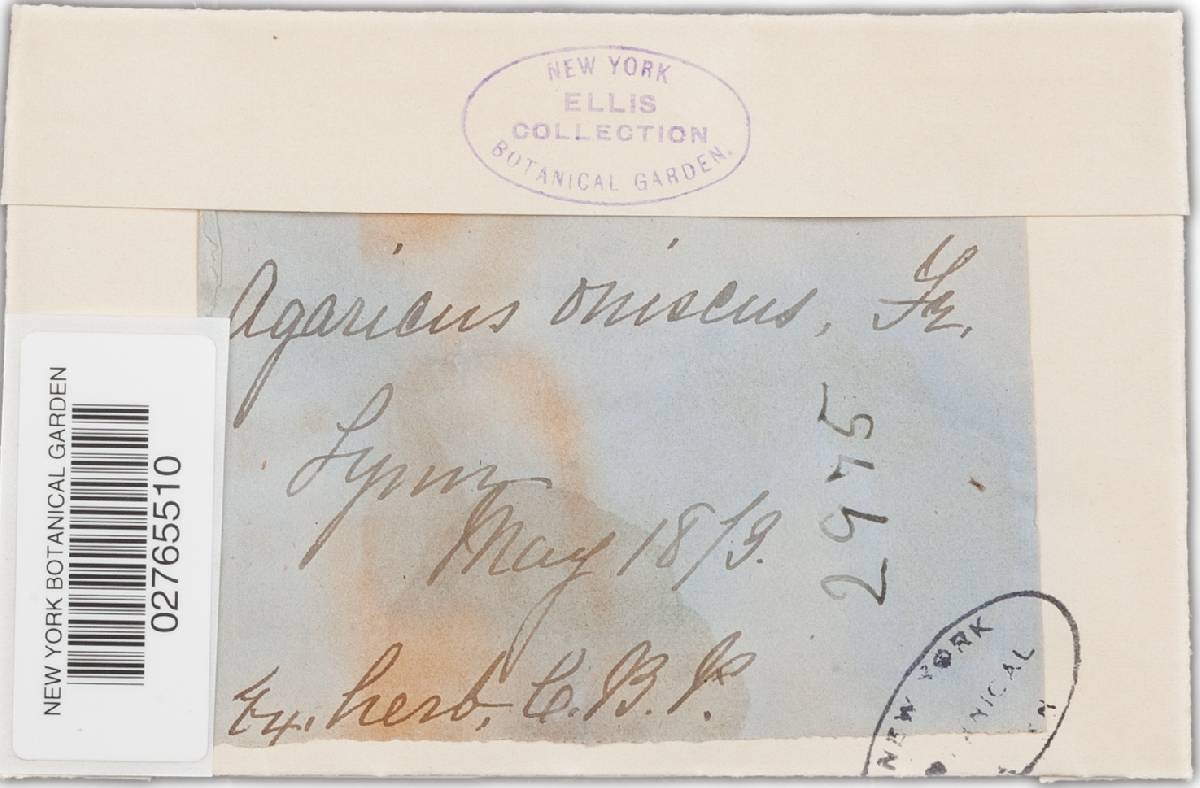 NEW YORK
ELLIS
COLLECTION
BOTANICAL GARDEN.
Agaricus oniscus, Fr.
Lynn
May 18/9.
Ex. herb. C. B. P.
2945
NEW YORK BOTANICAL GARDEN
02765510
NEW YORK